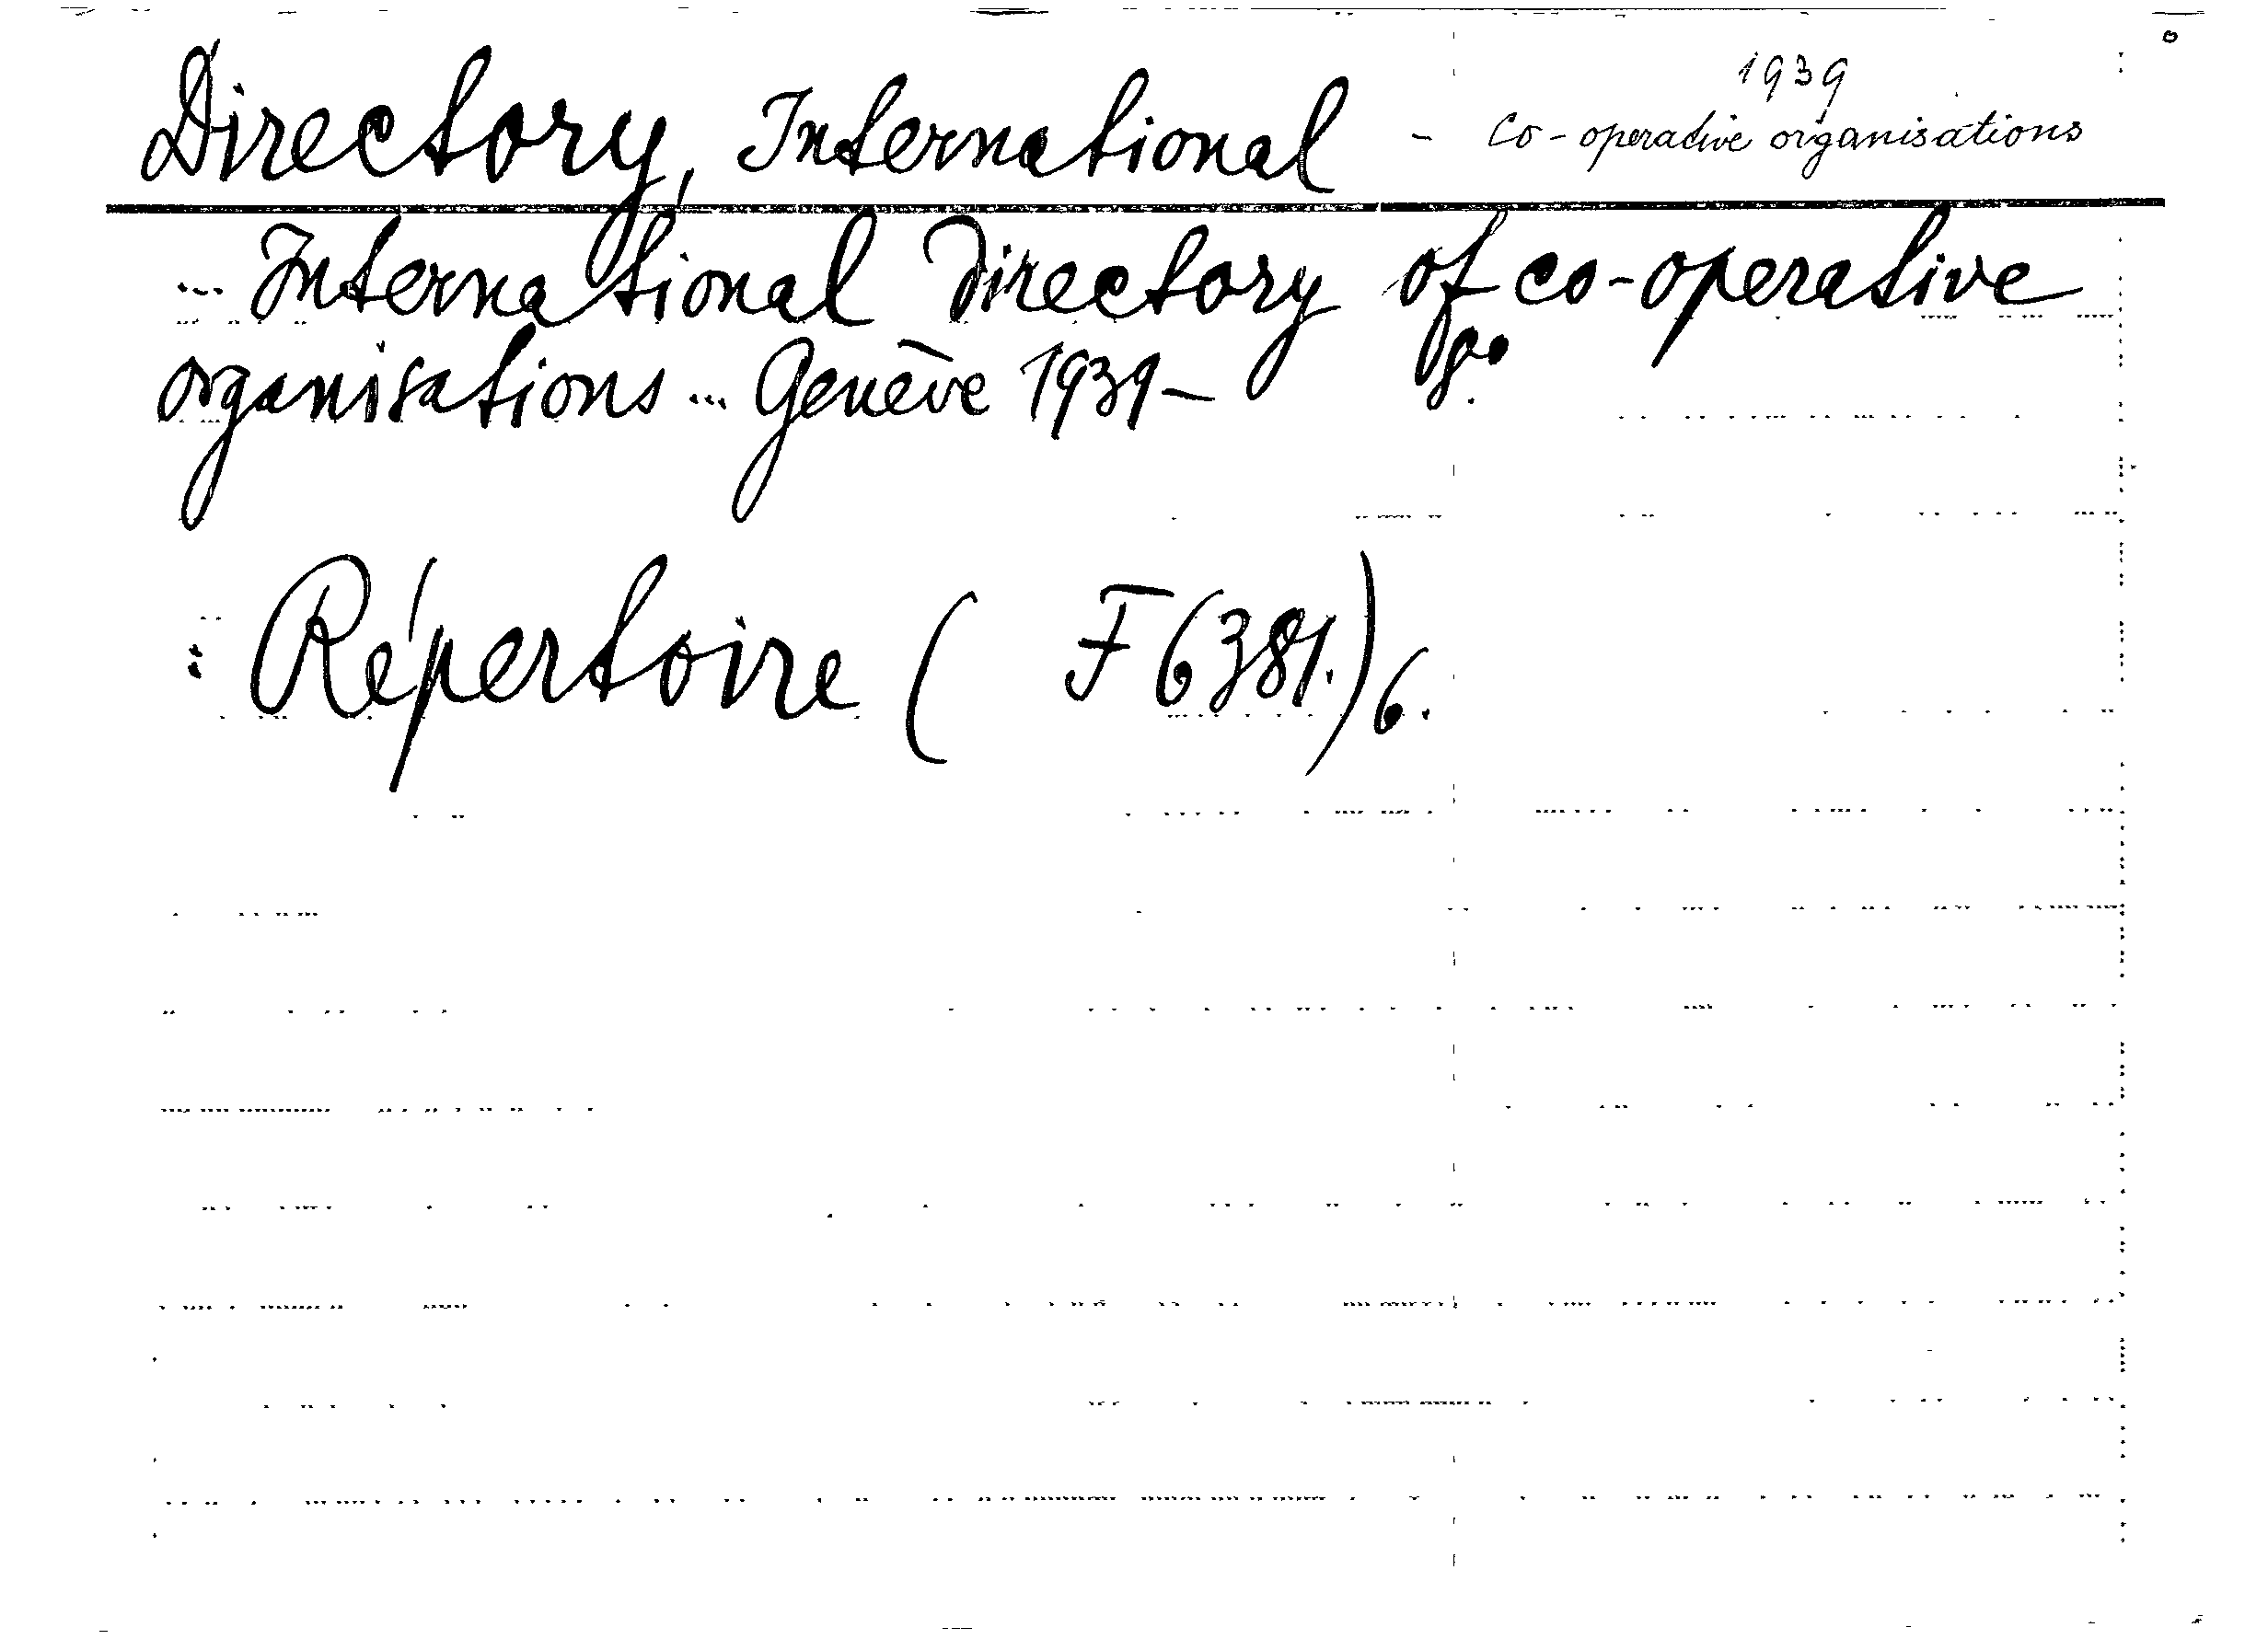 1939
Directory, International - Co-operative organisations
... International Directory of co-operative
organisations ... Genève 1939- 8°.
: Répertoire ( F 6381.) 6.